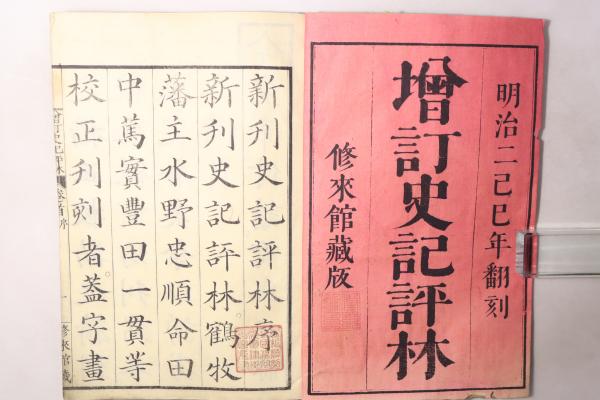 明治二己巳年翻刻
增訂史記評林
修來館藏版
新刋史記評林序
新刋史記評林鶴牧
藩主水野忠順命田
中篤實豐田一貫等
校正刋刻者蓋字畫
增訂史記評林 卷首序
一
修來館藏